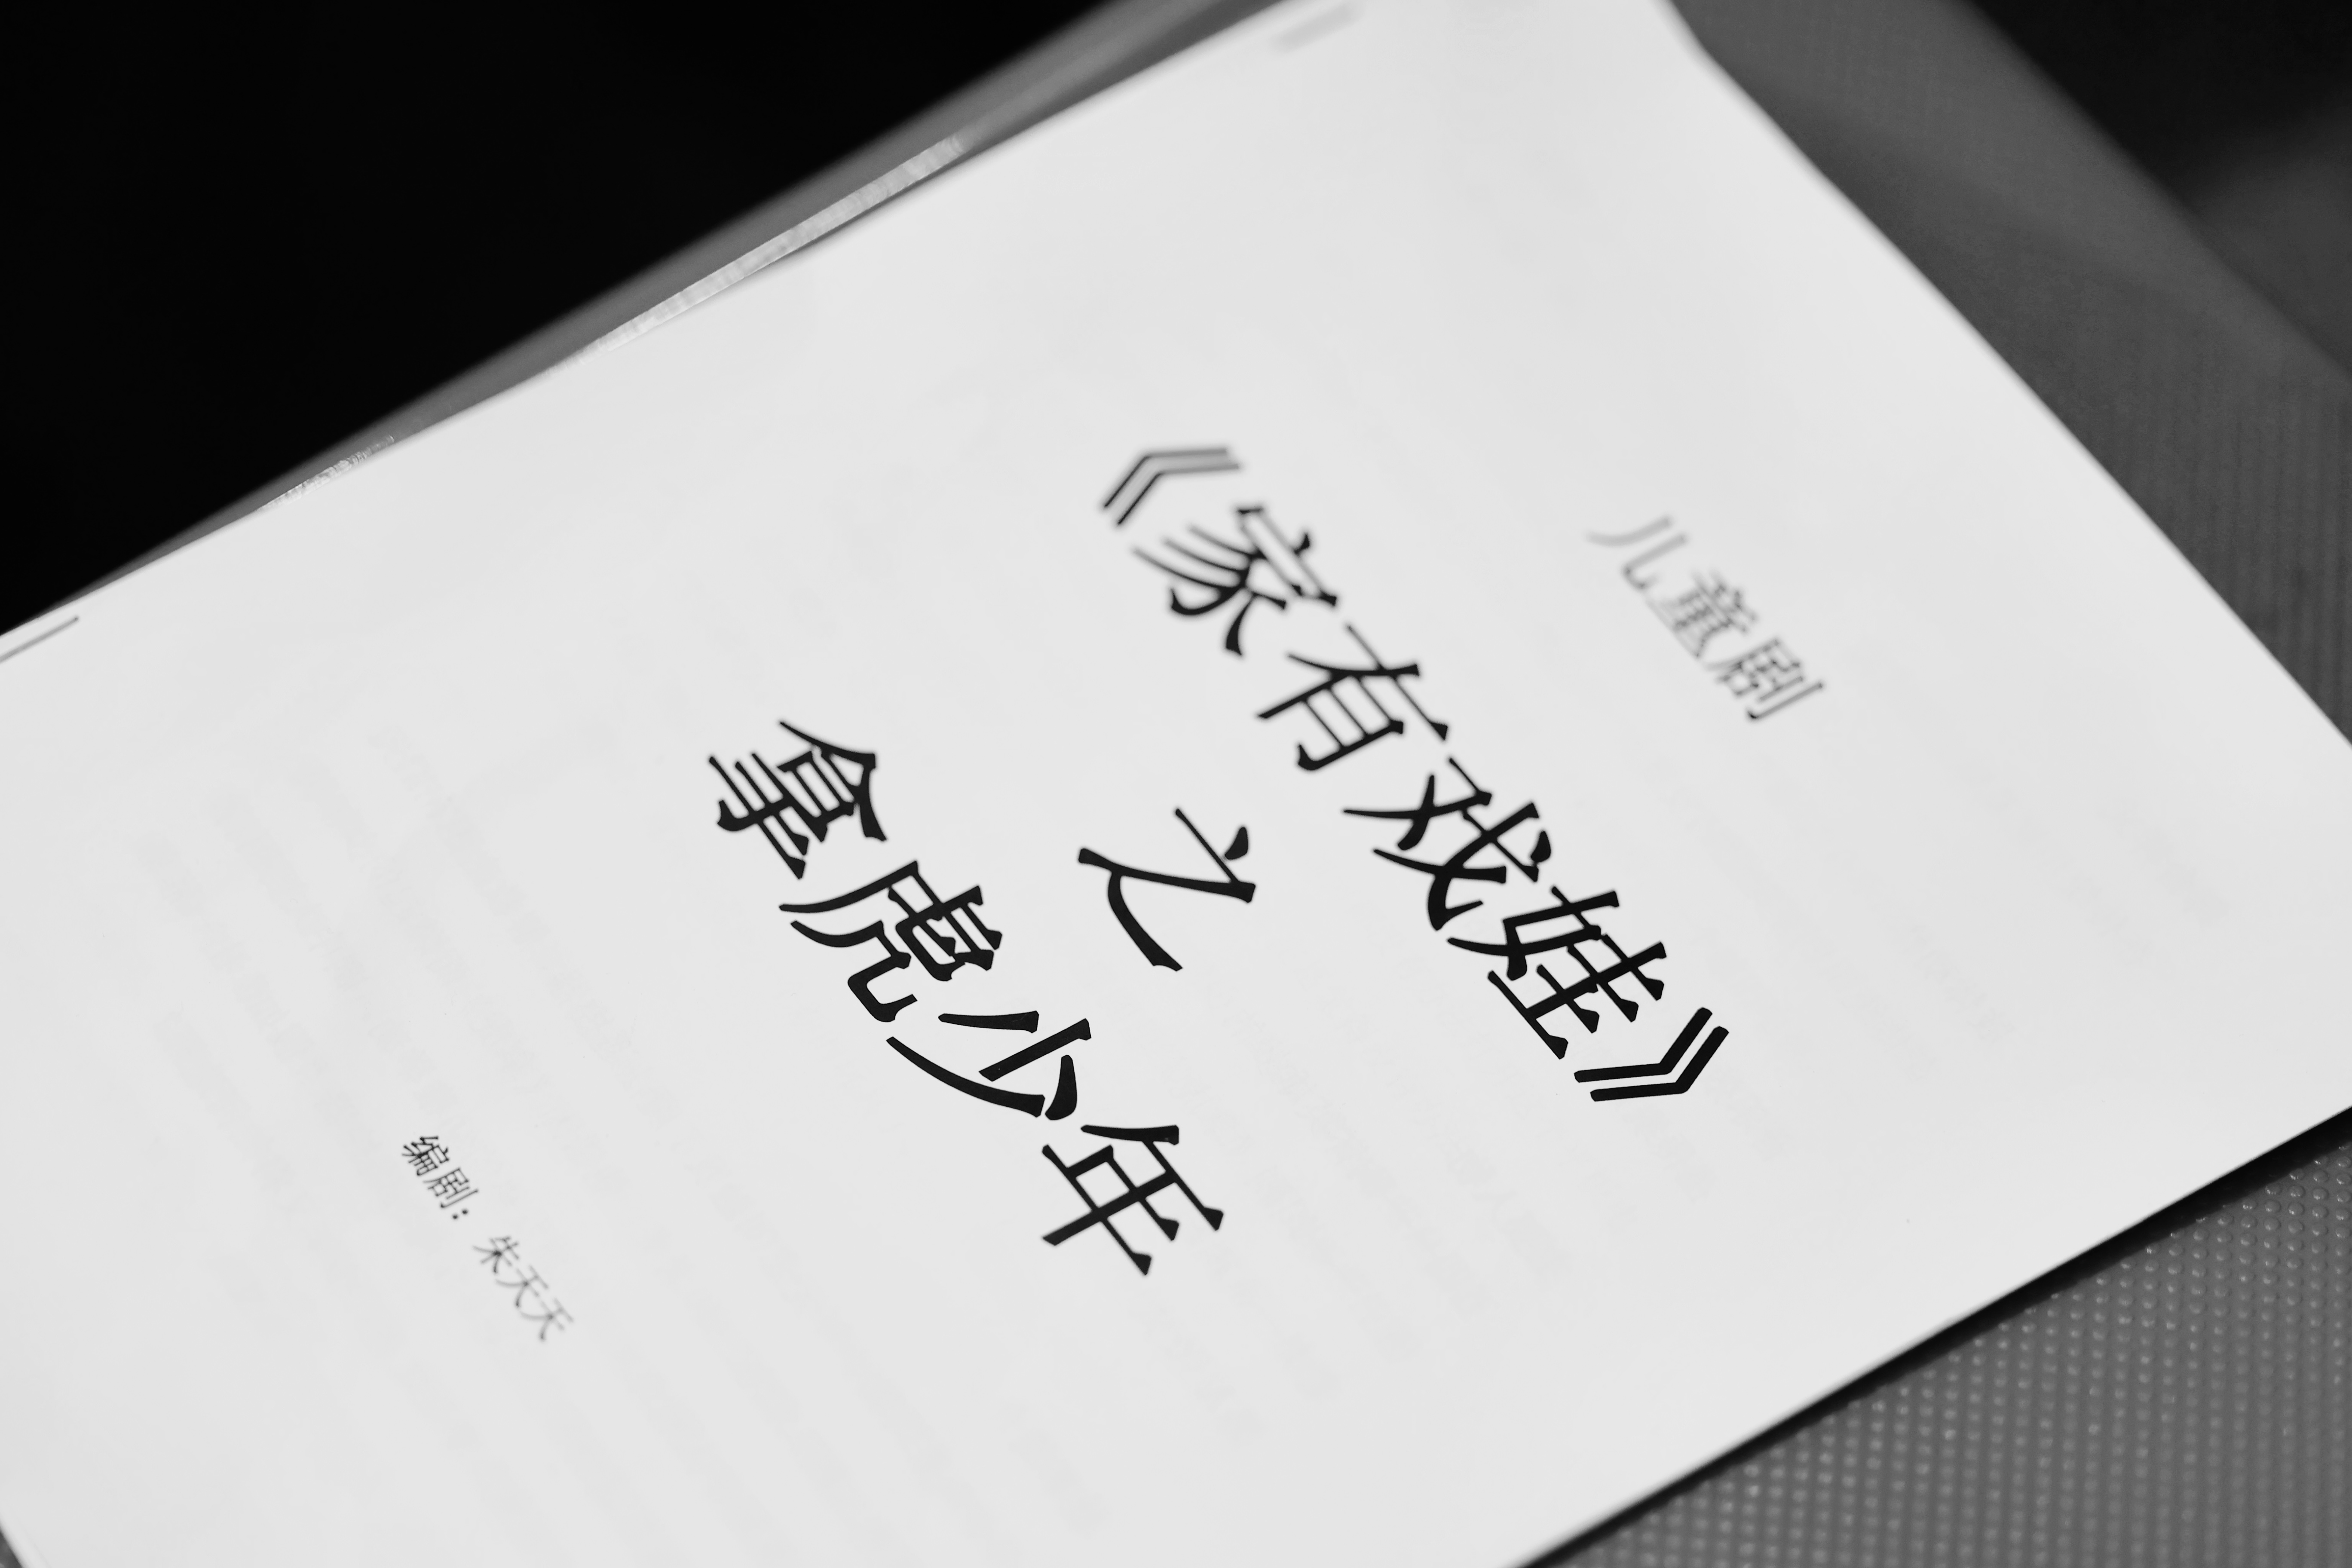 儿童剧
《家有戏娃》
之
拿虎少年
编剧：朱天天